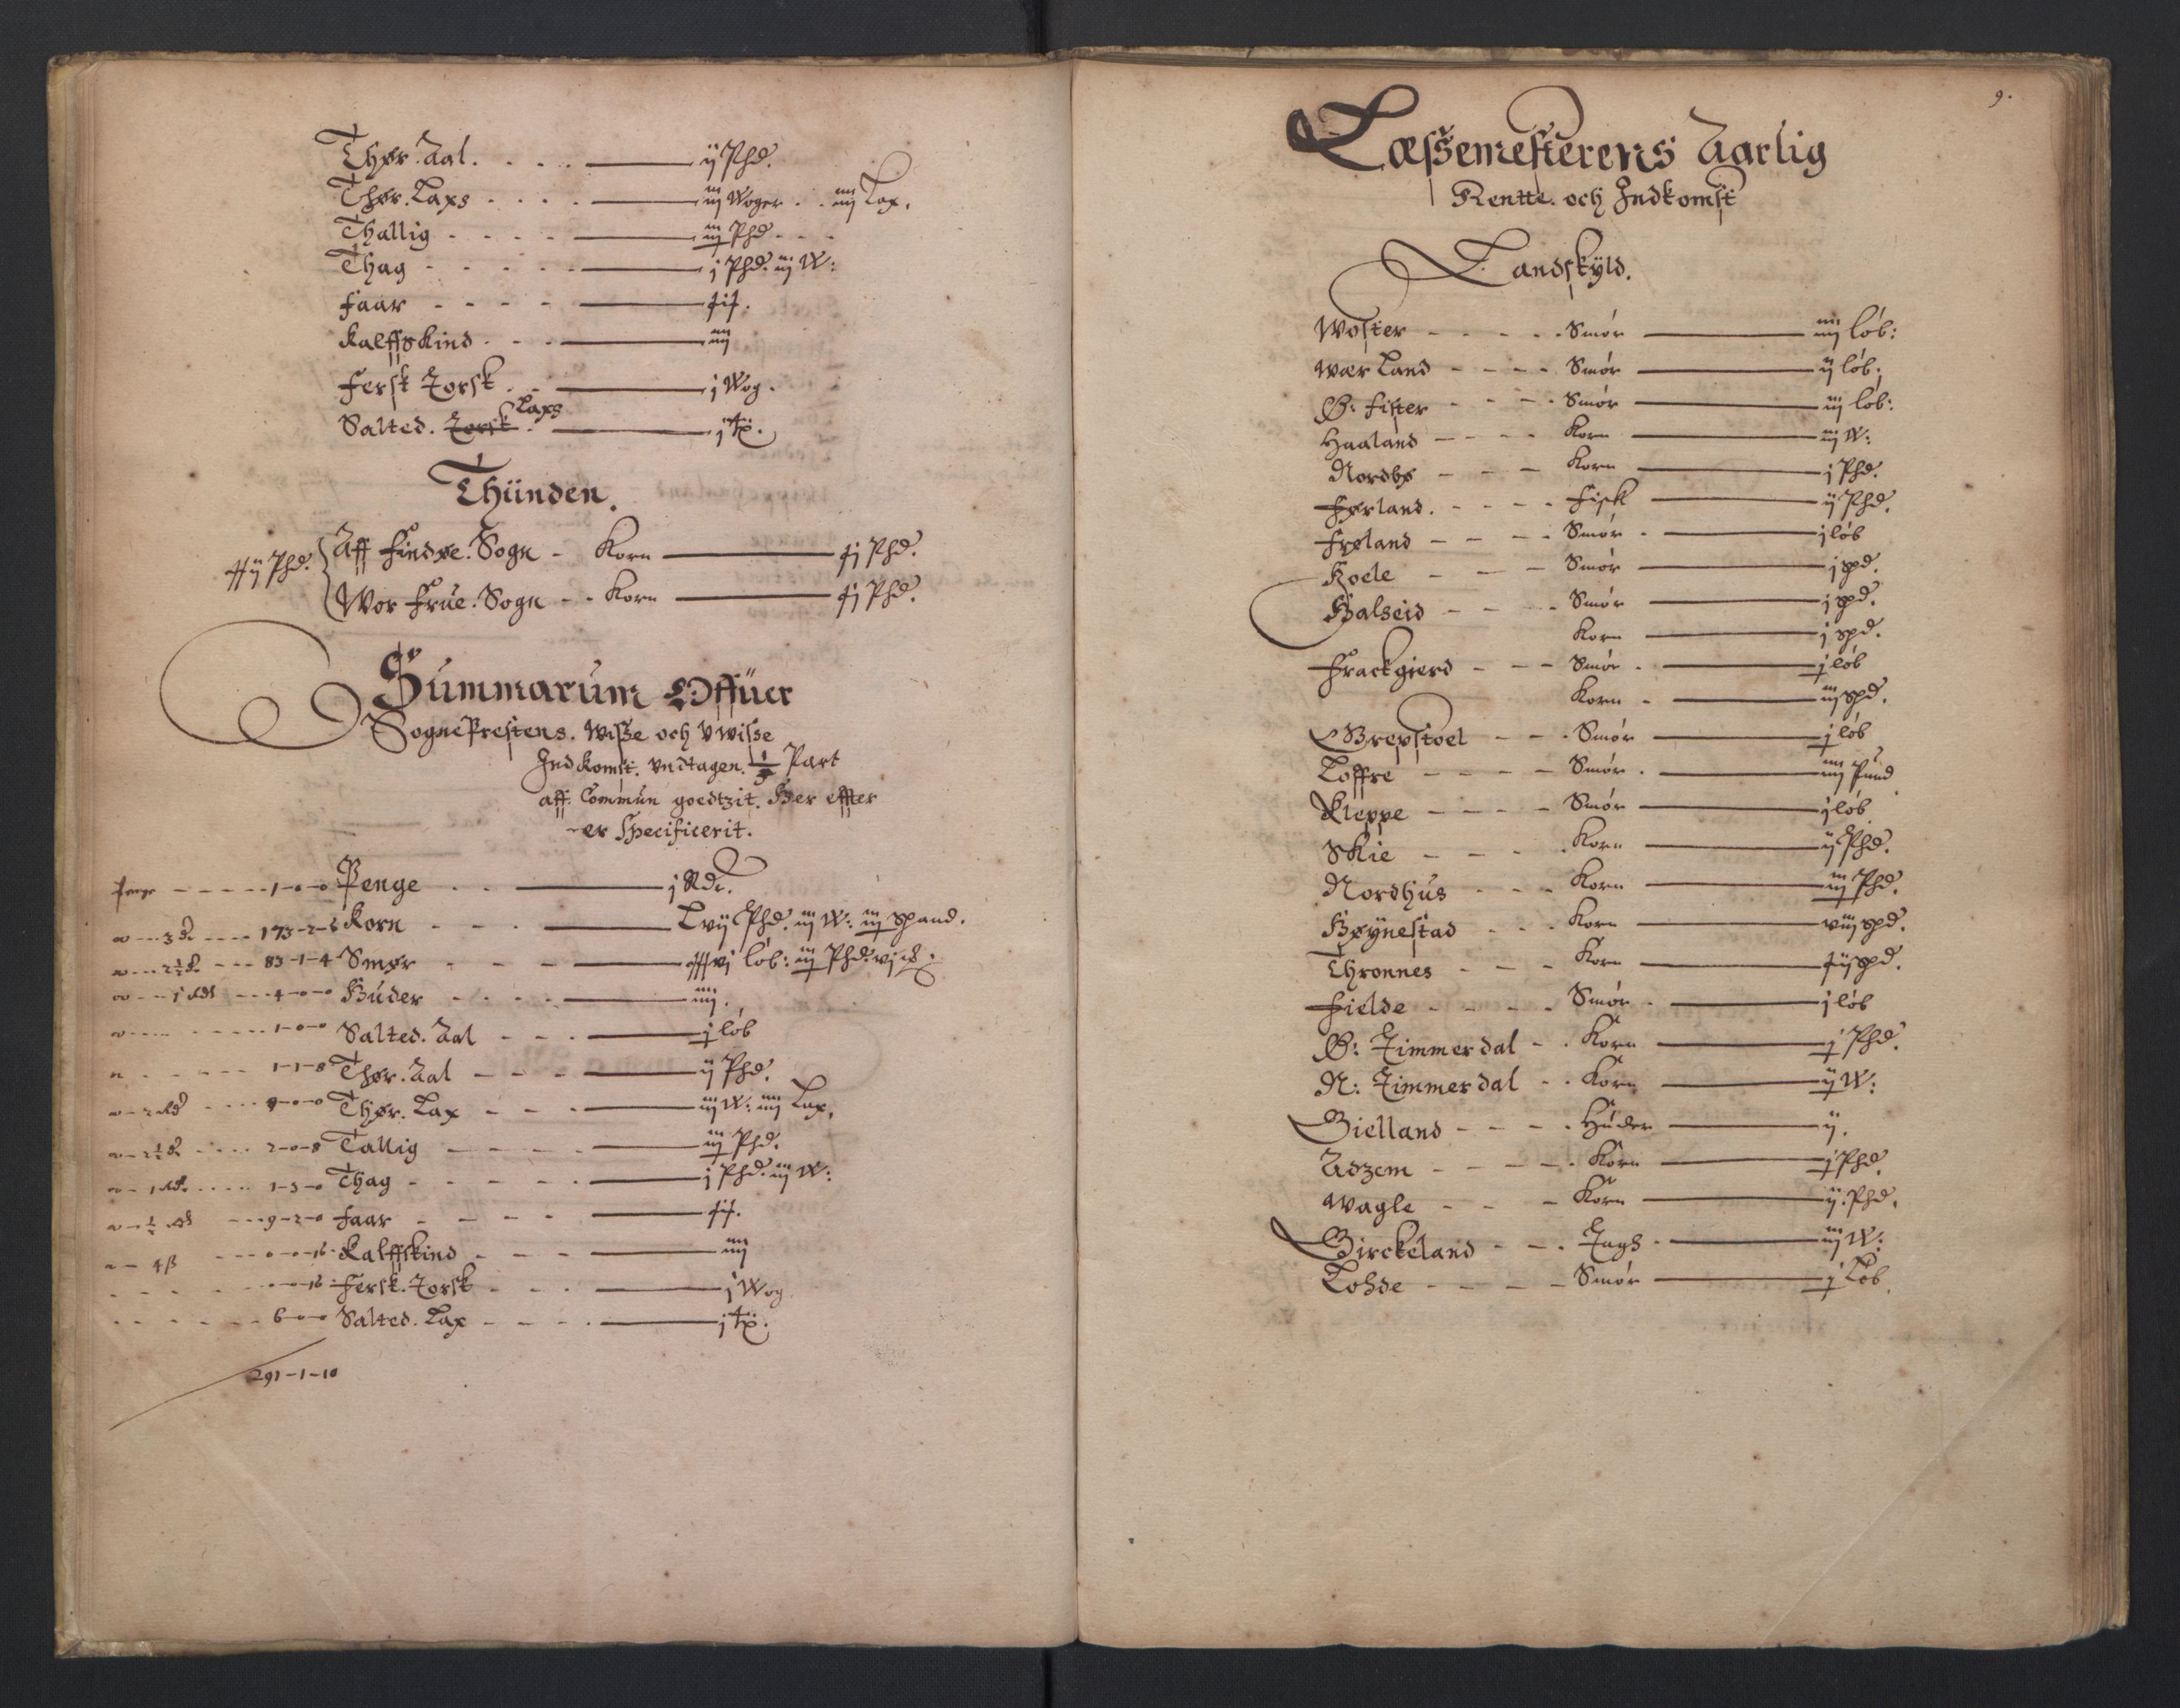 Thør. Aal. . . . . ij Phd.
Thør. Laxs . . . . iij Woger . . iiij Lax.
Thallig - - - - iij Phd - - -
Thag - - - - - j Phd. iij W:
Faar - - - -
Kalffskind - - - iiij
Fersk Torsk . - j Wog.
Laxs
Salted. Torsk . j Tø.
Thiinden.
Aff Findøe. Sogn - Korn
Wor Frue. Sogn - - Korn
Summarum Offuer
SognePrestens. Wisse och Vwisse
Indkomst. vndtagen. Part
aff. Commun goedtzit. Her effter
er Specificerit.
Penge - - - - - 1-0-0 Penge . . j Rdr.
3 - - - - 173-2- Korn - - - Lvij Phd. iij W: iij spand.
2½ - - - 83-1-4 Smør - - - - vj løb: iij Phd:
- - - 4-0-0 Huder - - - - iiij.
- - - - 1-0-0 Salted. Aal - - - j løb
- - - - 1-1-8 Thør. Aal - - - - ij Phd.
- - - - Thør. Lax - - - iij W: iiij Lax.
2½ - - - - 2-0-8 Tallig - - - - iij Phd.
1 - - - - 1-3-0 Thag - - - - - j Phd. iij W:
½ - - - 9-2-0 Faar - - - -
4 ß - - - 0-0-16 Kalffskind - - - iiij
- - - - - 0-0-16 Fersk. Torsk - - - j Wog
- - - - - 6-0-0 Salted. Lax - - - - j Tø.
291-1-10
9.
Læssemesterens Aarlig
Rentte. och Indkomst
Landskyld.
Woster - - - - - Smór iiij lób:
Wær Land - - - - Smór ij lób:
Ø: Fister - - - - Smór iij lób:
Haaland - - - - Korn iij W:
Nordbø - - - Korn j Phd.
Førland. - - - - Fisk ij Phd.
Frøland - - - - Smór - j lób
Koele - - - Smór j spd.
Halseid - - - - Smór j spd.
Korn j spd.
Frackgierd - - - Smór - j lób
Korn - iij spd.
Brepstoel - - - Smór j lób
Loffre - - - - Smór . iiij Pund
Kleppe - - - - Smór j lób
Skie - - - . Korn ij Phd.
Nordhús - - - Korn iij Phd.
Høynestad - - - Korn viij spd.
Thronnes - - - Korn spd.
Fielde - - - - Smór - j lób
Ø: Timmerdal - - Korn j Phd.
N: Timmerdal - - Korn ij W:
Gielland - - - - Húder ij.
Adzem - - - - - Korn j Phd.
Wagle - - - Korn ij. Phd.
Birckeland - - - Tags - iij W:
Lohde - - - - Smór j Lób.